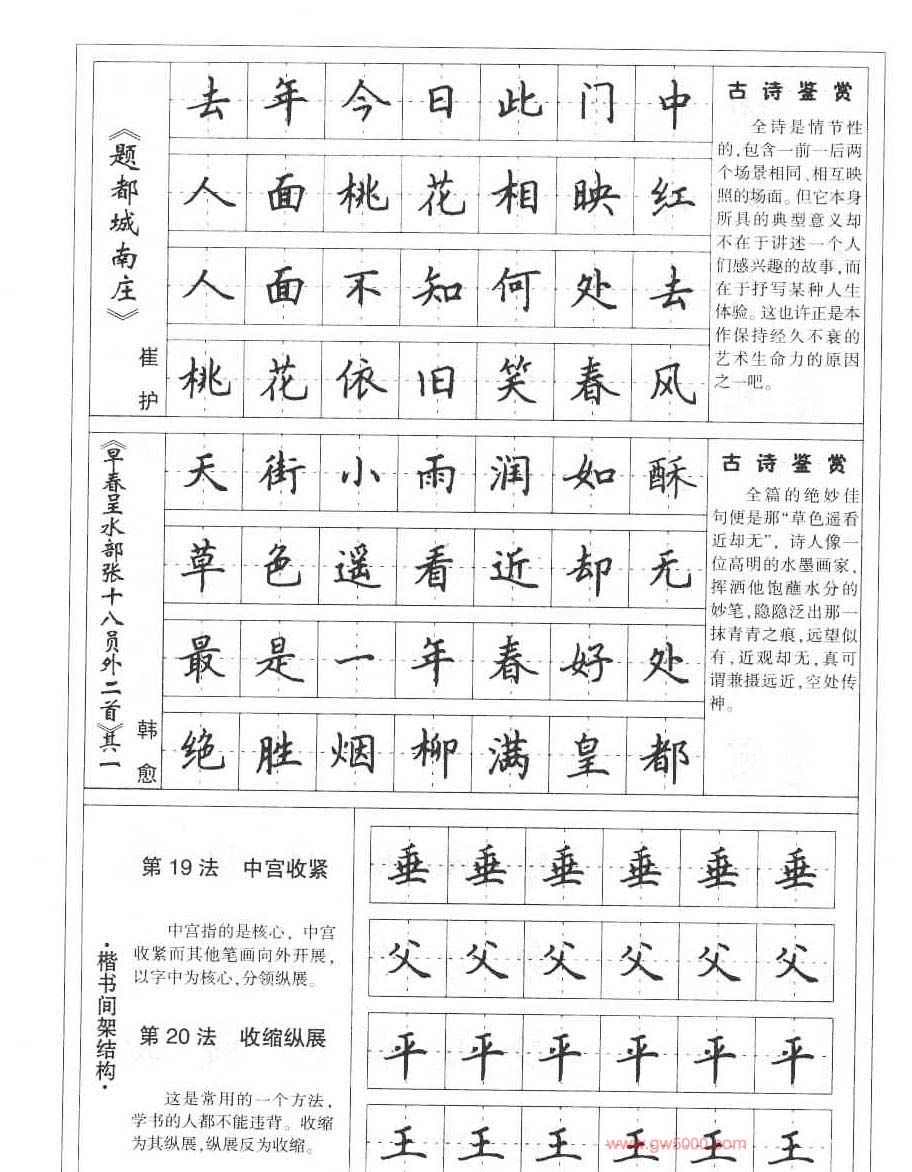 《题都城南庄》
崔护
去年今日此门中
人面桃花相映红
人面不知何处去
桃花依旧笑春风
古诗鉴赏
全诗是情节性
的,包含一前一后两
个场景相同、相互映
照的场面。但它本身
所具的典型意义却
不在于讲述一个人
们感兴趣的故事,而
在于抒写某种人生
体验。这也许正是本
作保持经久不衰的
艺术生命力的原因
之一吧。
《早春呈水部张十八员外二首》其一
韩愈
天街小雨润如酥
草色遥看近却无
最是一年春好处
绝胜烟柳满皇都
古诗鉴赏
全篇的绝妙佳
句便是那“草色遥看
近却无”，诗人像一
位高明的水墨画家,
挥洒他饱蘸水分的
妙笔,隐隐泛出那一
抹青青之痕,远望似
有,近观却无,真可
谓兼摄远近,空处传
神。
·楷书间架结构·
第19法 中宫收紧
中宫指的是核心，中宫
收紧而其他笔画向外开展,
以字中为核心,分领纵展。
第20法 收缩纵展
这是常用的一个方法,
学书的人都不能违背。收缩
为其纵展,纵展反为收缩。
垂垂垂垂垂垂
父父父父父父
平平平平平平
王王王王王王
www.gw5000.com